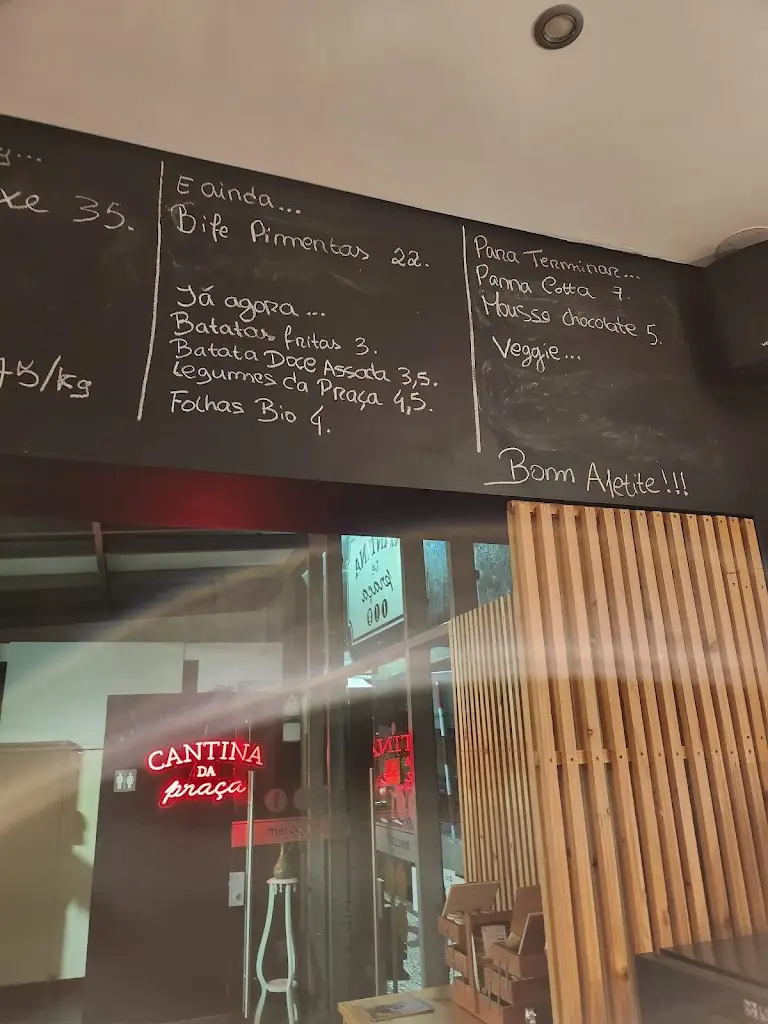 xe 35.
75/kg
E ainda...
Bife Pimentas 22.
Já agora...
Batatas fritas 3.
Batata Doce Assada 3,5.
Legumes da Praça 4,5.
Folhas Bio 4.
Para Terminar...
Panna Cotta 7.
Mousse chocolate 5.
Veggie...
Bom Apetite!!!
CANTINA
DA
praça